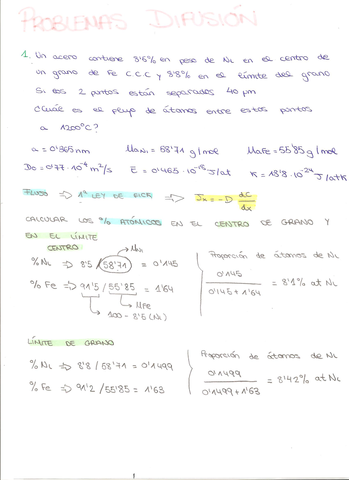 PROBLEMAS DIFUSIÓN
1. Un acero contiene 8'5% en peso de Ni en el centro de
un grano de Fe C.C.C y 8'8% en el límite del grano
Si esos 2 puntos están separados 40 μm
¿Cuál es el flujo de átomos entre estos puntos
a 1200°C?
a = 0'365 nm Ma Ni = 58'71 g/mol Ma Fe = 55'85 g/mol
Do = 0'77·10⁻⁴ m²/s E = 0'465·10⁻¹⁸ J/at K = 13'8·10⁻²⁴ J/atK
FLUJO ⇒ 1ª LEY DE FICK ⇒ Jx = -D dC/dx
CALCULAR LOS % ATÓMICOS EN EL CENTRO DE GRANO Y
EN EL LÍMITE
CENTRO
MNi
% Ni ⇒ 8'5 / 58'71 = 0'145
% Fe ⇒ 91'5 / 55'85 = 1'64
MFe
100 - 8'5 (Ni)
Proporción de átomos de Ni
0'145 / 0'145 + 1'64 = 8'1% at Ni
LÍMITE DE GRANO
% Ni ⇒ 8'8 / 58'71 = 0'1499
% Fe ⇒ 91'2 / 55'85 = 1'63
Proporción de átomos de Ni
0'1499 / 0'1499 + 1'63 = 8'42% at Ni